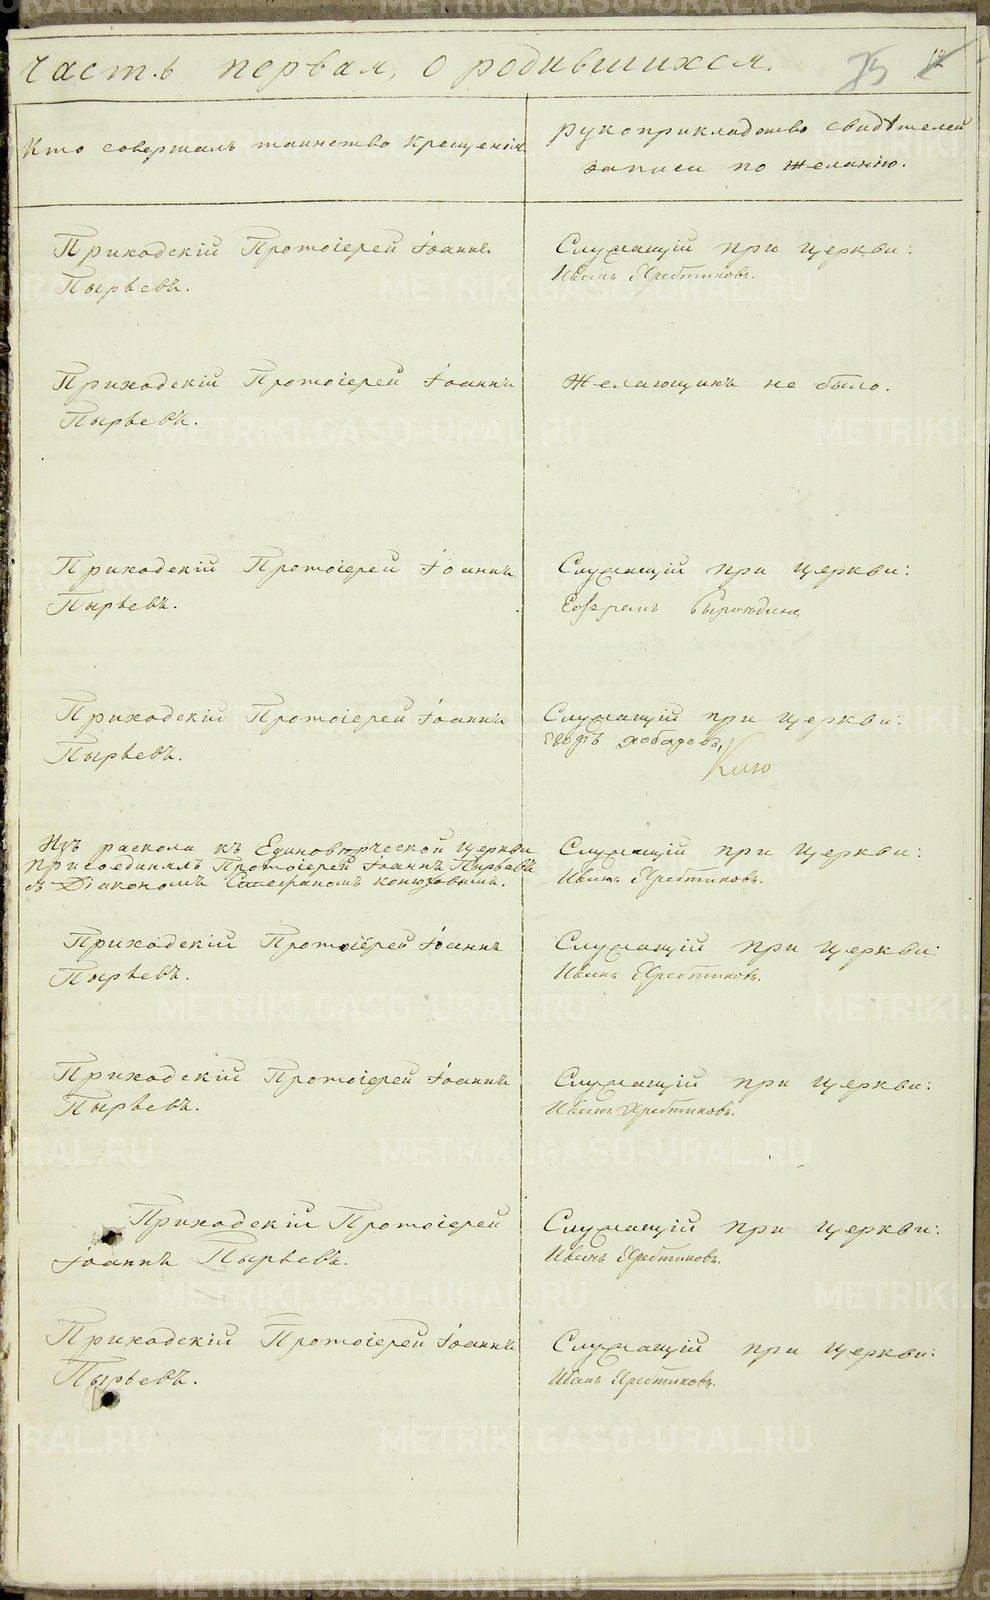 Часть первая, о родившихся.
12
Кто совершалъ таинство Крещенія.
Рукоприкладство свидѣтелей
записи по желанію.
Приходскій Протоіерей Іоаннъ
Пырьевъ.
Служащій при Церкви:
Иванъ Хребтиковъ.
Приходскій Протоіерей Іоаннъ
Пырьевъ.
Желающихъ не было.
Приходскій Протоіерей Іоаннъ
Пырьевъ.
Служащій при Церкви:
Приходскій Протоіерей Іоаннъ
Пырьевъ.
Служащій при Церкви:
Изъ раскола къ Единовѣрческой Церкви
присоединялъ Протоіерей Іоаннъ Пырьевъ
съ Діакономъ Стефаномъ Конюховымъ.
Служащій при Церкви:
Иванъ Хребтиковъ.
Приходскій Протоіерей Іоаннъ
Пырьевъ.
Служащій при Церкви:
Иванъ Хребтиковъ.
Приходскій Протоіерей Іоаннъ
Пырьевъ.
Служащій при Церкви:
Иванъ Хребтиковъ.
Приходскій Протоіерей
Іоаннъ Пырьевъ.
Служащій при Церкви:
Иванъ Хребтиковъ.
Приходскій Протоіерей Іоаннъ
Пырьевъ.
Служащій при Церкви:
Иванъ Хребтиковъ.
METRIKI.GASO-URAL.RU